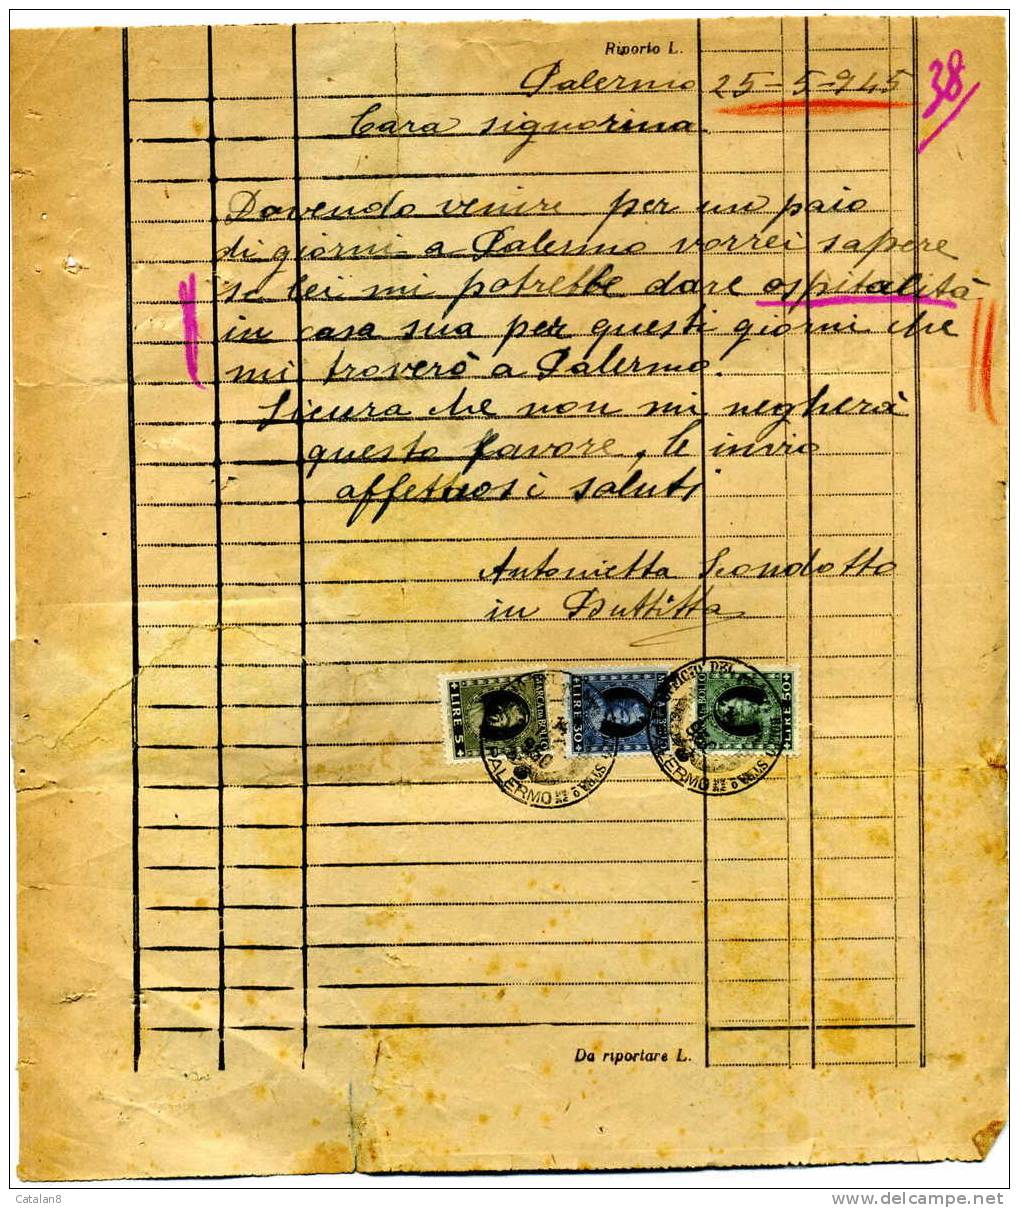 Riporto L.
Palermo 25-5-945
38
Cara signorina
Dovendo venire per un paio
di giorni a Palermo vorrei sapere
se lei mi potrebbe dare ospitalità
in casa sua per questi giorni che
mi troverò a Palermo.
Sicura che non mi negherà
questo favore, le invio
affettuosi saluti
Antonietta
in Buttitta
LIRE 5
MARCA DA BOLLO
LIRE 30
LIRE 50
PALERMO
PALERMO
Da riportare L.
Catalan8
www.delcampe.net